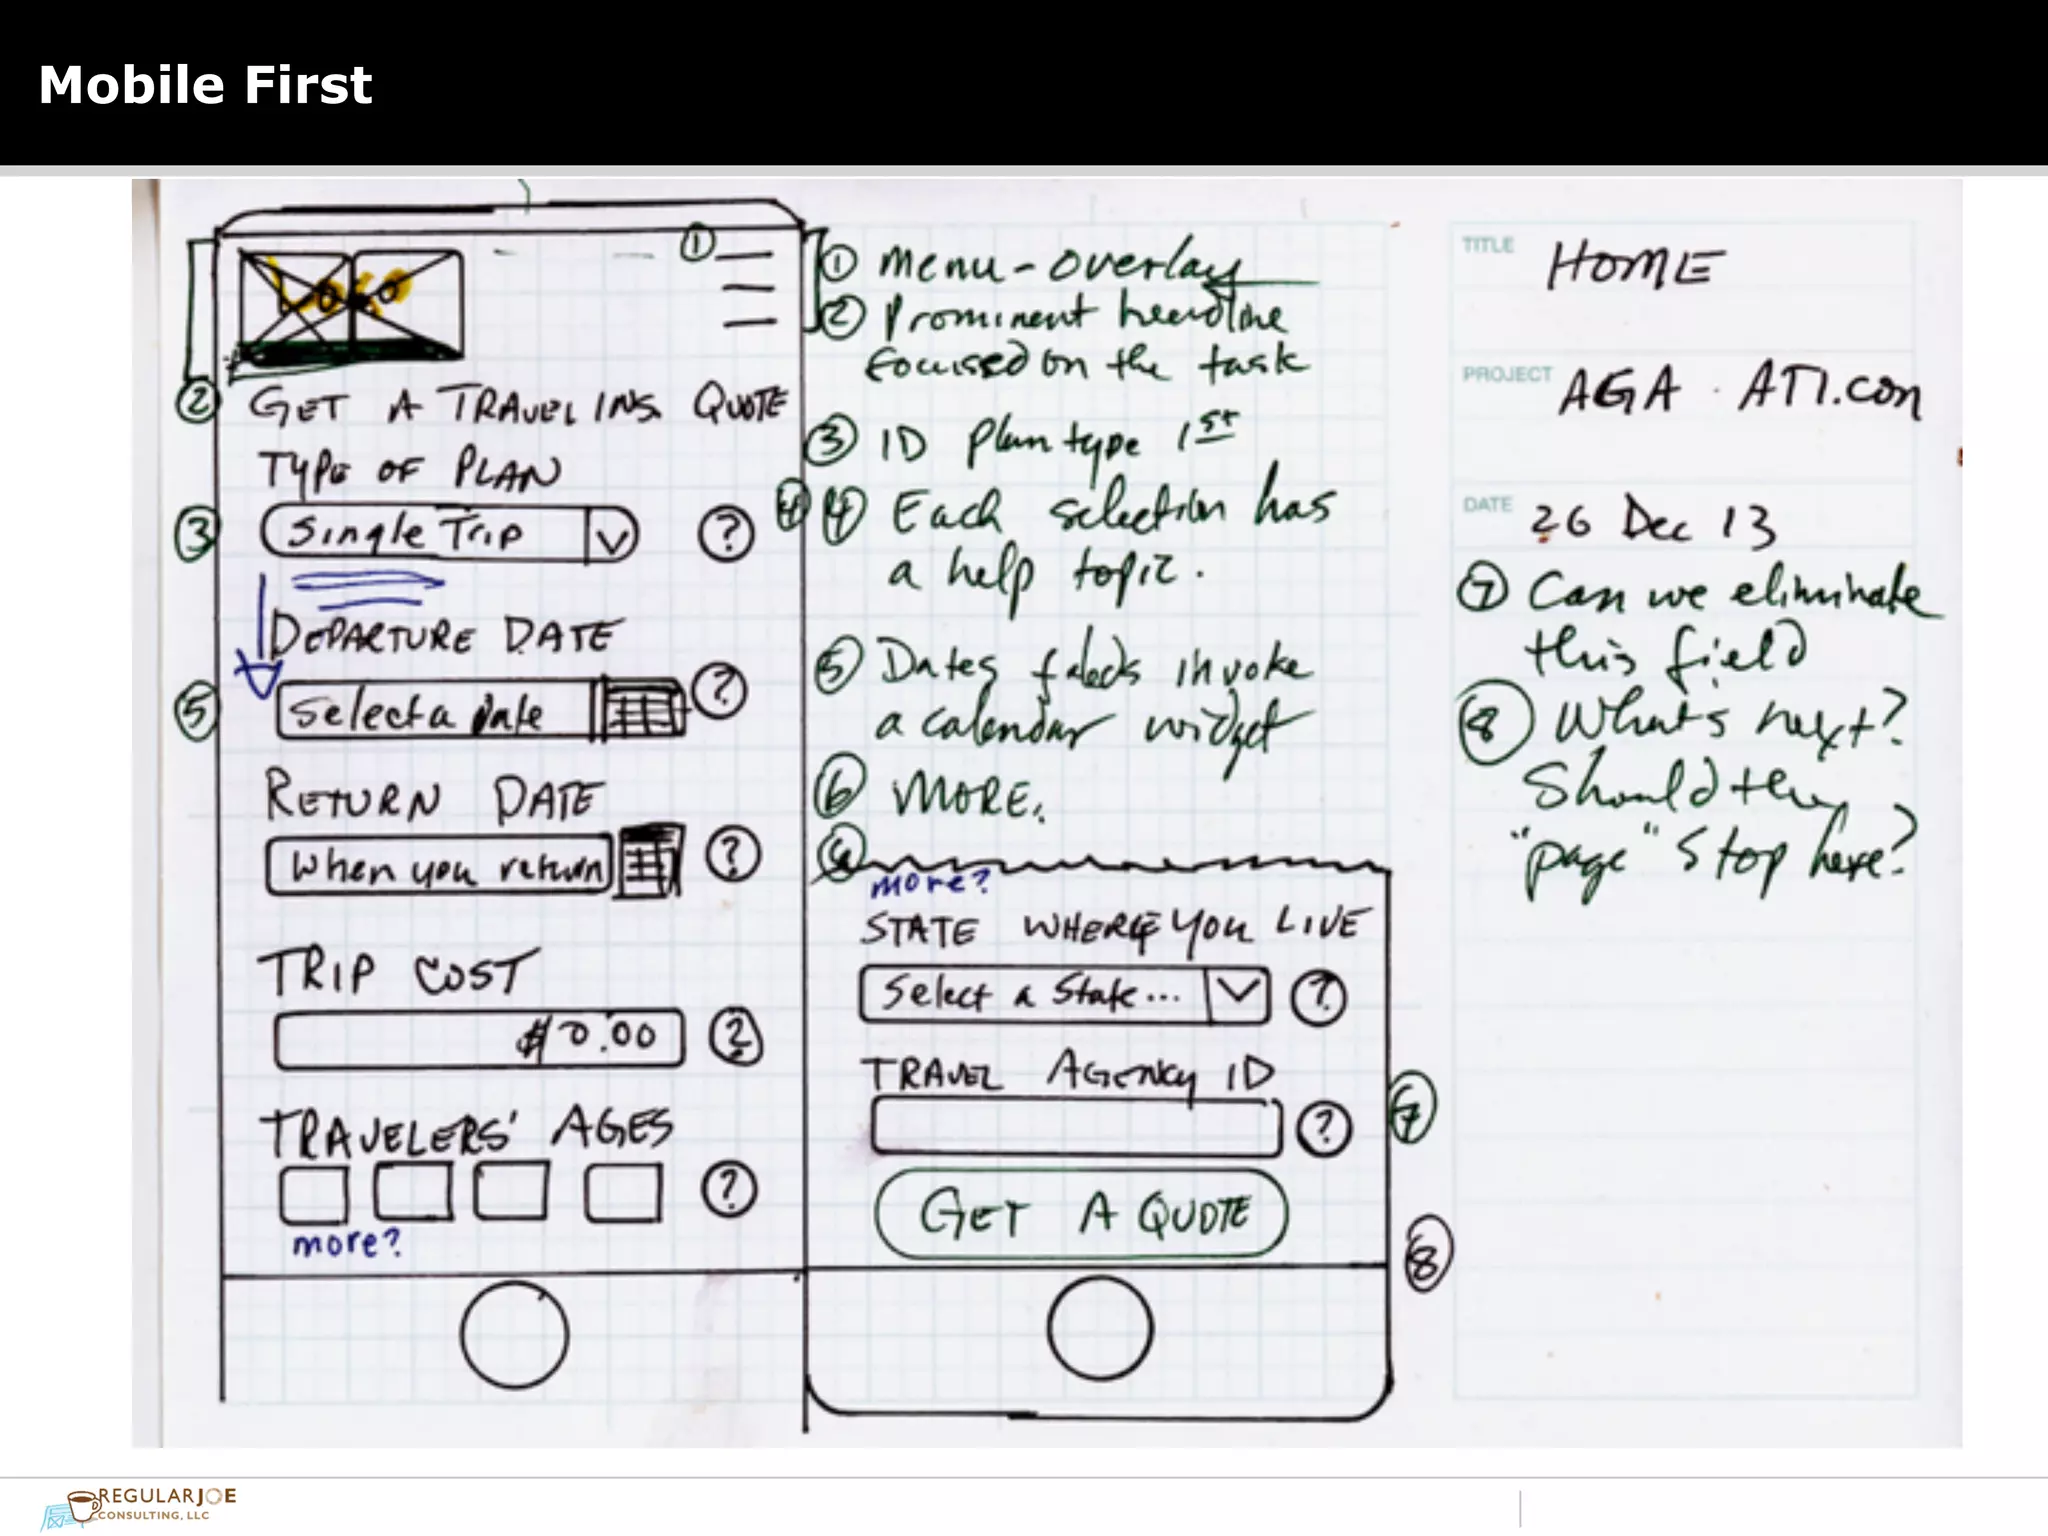 Mobile First
LOGO
1
2 GET A TRAVEL INS. QUOTE
TYPE OF PLAN
3 Single Trip ?
DEPARTURE DATE
5 Select a Date ?
RETURN DATE
When you return ?
TRIP COST
$0.00 ?
TRAVELERS' AGES
?
more?
1 Menu - overlay
2 Prominent headline
focused on the task
3 ID plan type 1st
4 4 Each selection has
a help topic.
5 Dates fields invoke
a calendar widget
6 MORE.
6
more?
STATE WHERE YOU LIVE
Select a State... ?
TRAVEL AGENCY ID
? 7
GET A QUOTE
8
TITLE HOME
PROJECT AGA · ATI.com
DATE 26 Dec 13
7 Can we eliminate
this field
8 What's next?
Should they
"page" stop here?
REGULARJOE
CONSULTING, LLC